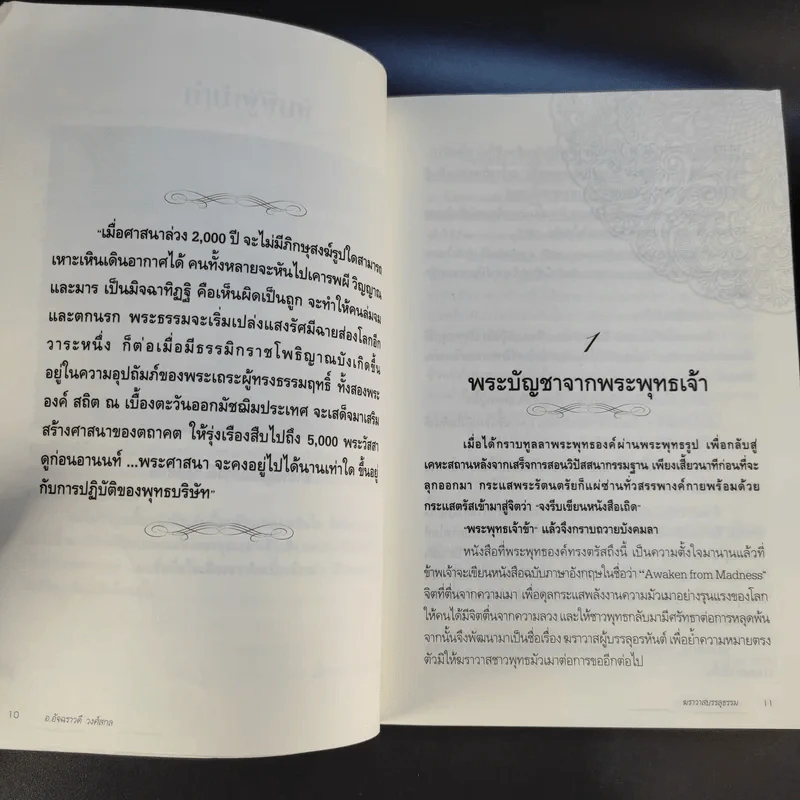 "เมื่อศาสนาล่วง 2,000 ปี จะไม่มีภิกษุสงฆ์รูปใดสามารถ
เหาะเหินเดินอากาศได้ คนทั้งหลายจะหันไปเคารพผี วิญญาณ
และมาร เป็นมิจฉาทิฏฐิ คือเห็นผิดเป็นถูก จะทำให้คนล่มจม
และตกนรก พระธรรมจะเริ่มเปล่งแสงรัศมีฉายส่องโลกอีก
วาระหนึ่ง ก็ต่อเมื่อมีธรรมิกราชโพธิญาณบังเกิดขึ้น
อยู่ในความอุปถัมภ์ของพระเถระผู้ทรงธรรมฤทธิ์ ทั้งสองพระ
องค์ สถิต ณ เบื้องตะวันออกมัชฌิมประเทศ จะเสด็จมาเสริม
สร้างศาสนาของตถาคต ให้รุ่งเรืองสืบไปถึง 5,000 พระวัสสา
ดูก่อนอานนท์ ...พระศาสนา จะคงอยู่ไปได้นานเท่าใด ขึ้นอยู่
กับการปฏิบัติของพุทธบริษัท"
10 อ.อัจฉราวดี วงศ์สกล
1
พระบัญชาจากพระพุทธเจ้า
เมื่อได้กราบทูลลาพระพุทธองค์ผ่านพระพุทธรูป เพื่อกลับสู่
เคหะสถานหลังจากเสร็จการสอนวิปัสสนากรรมฐาน เพียงเสี้ยวนาทีก่อนที่จะ
ลุกออกมา กระแสพระรัตนตรัยก็แผ่ซ่านทั่วสรรพางค์กายพร้อมด้วย
กระแสตรัสเข้ามาสู่จิตว่า "จงรีบเขียนหนังสือเถิด"
"พระพุทธเจ้าข้า" แล้วจึงกราบถวายบังคมลา
หนังสือที่พระพุทธองค์ทรงตรัสถึงนี้ เป็นความตั้งใจมานานแล้วที่
ข้าพเจ้าจะเขียนหนังสือฉบับภาษาอังกฤษในชื่อว่า "Awaken from Madness"
จิตที่ตื่นจากความเมา เพื่อดุลกระแสพลังงานความมัวเมาอย่างรุนแรงของโลก
ให้คนได้มีจิตตื่นจากความลวง และให้ชาวพุทธกลับมามีศรัทธาต่อการหลุดพ้น
จากนั้นจึงพัฒนามาเป็นชื่อเรื่อง ฆราวาสผู้บรรลุอรหันต์ เพื่อย้ำความหมายตรง
ตัวมิให้ฆราวาสชาวพุทธมัวเมาต่อการขออีกต่อไป
ฆราวาสบรรลุธรรม 11